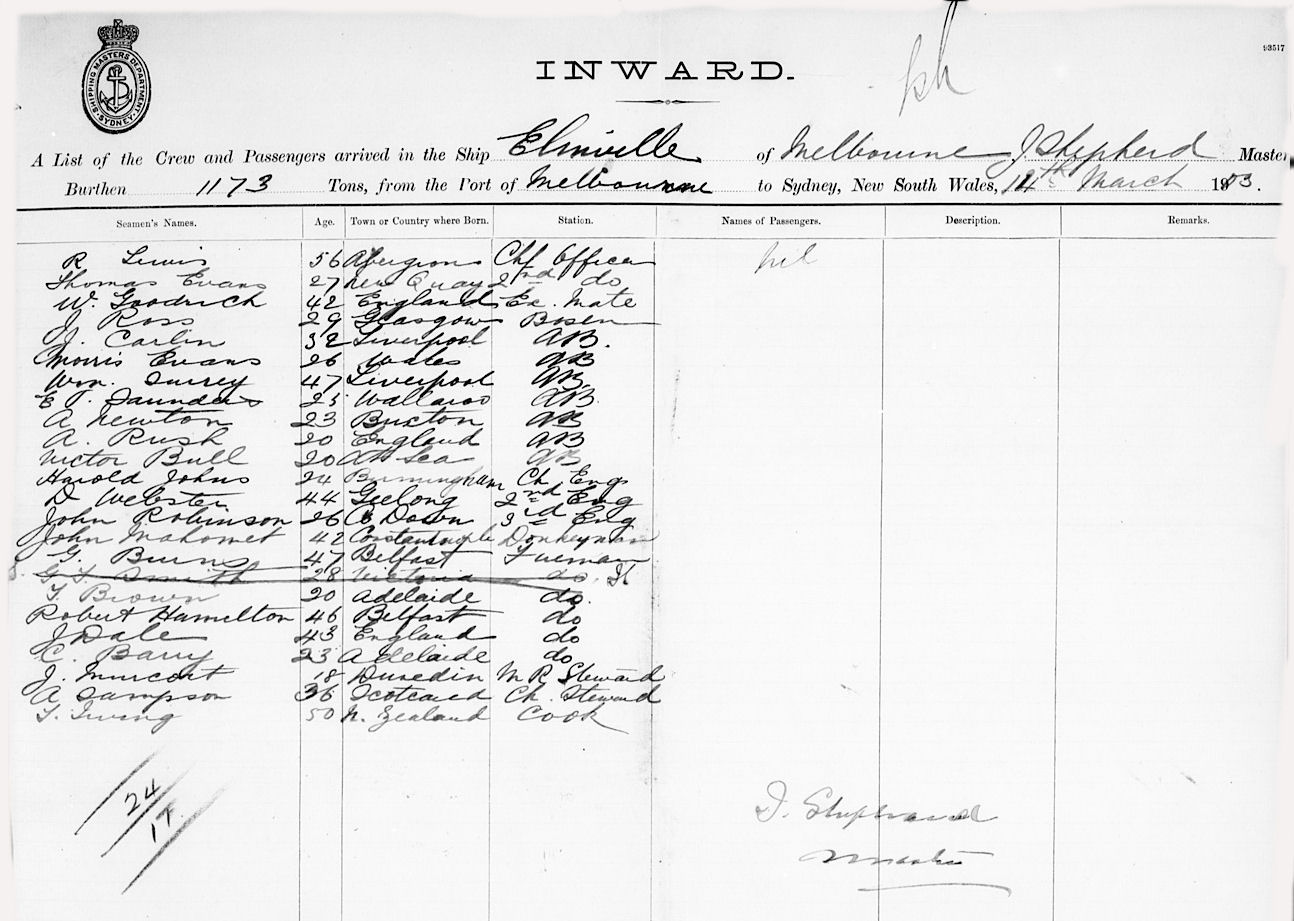 93517
SHIPPING MASTERS DEPARTMENT
SYDNEY
INWARD.
A List of the Crew and Passengers arrived in the Ship Elinville of Melbourne J Shepherd Master
Burthen 1173 Tons, from the Port of Melbourne to Sydney, New South Wales, 14th March 1903.
Seamen's Names. Age. Town or Country where Born. Station. Names of Passengers. Description. Remarks.
R Lewis 56 Chf Officer nil
Thomas Evans 27 New Quay 2nd do
W. Goodrich 42 England Ex. Mate
J. Ross 29 Glasgow Bosen
J. Carlin 32 Liverpool AB.
Morris Evans 26 Wales AB
Wm. Surrey 47 Liverpool AB.
E T. Saunders Wallaroo AB.
A Newton 23 Buxton AB
A. Rush 20 England AB
Victor Bull 20 At Sea AB
Harold Johns 24 Burmingham Ch Eng
D Webster 44 Geelong 2nd Eng
John Robinson 26 Co Down 3rd Eng
John Mahomet 42 Donkeyman
G. Burns 47 Belfast Fireman
Smith 28 Victoria do
T. Brown 20 Adelaide do.
Robert Hamilton 46 Belfast do
J Dale 43 England do
C. Barry 23 Adelaide do
J. Murcott 18 Dunedin M R Steward
A Sampson 36 Scotland Ch. Steward
T. Irving 50 N. Zealand Cook
24
17
J. Shepherd
Master